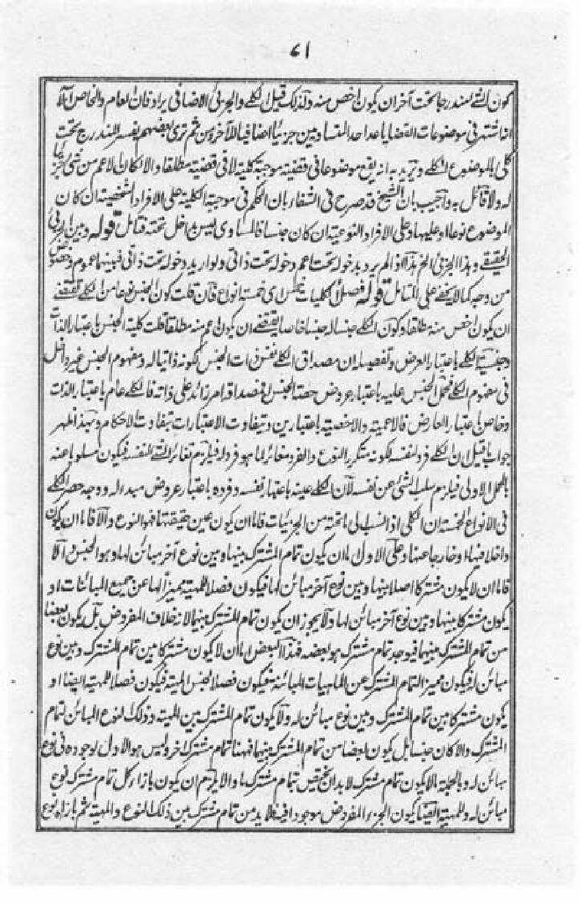 ٤١
كون الشئ مندرجا تحت آخران يكون اخص منه ولذلك قيل الكلے والجزئى الاضافى يرادفان العام والخاص الا
اذا اشتهر فى موضوعات القضايا عد احد المتساويين جزئيا اضافيا للآخر ومن ثم ترى بعضهم يفسر المندرج تحت
كلى بالموضوع الكلے ويريد به انه يقع موضوعا فى قضية موجبة كلية لا فى قضية مطلقا والا لكان الاعم من شئ جزئيا
له ولا قائل به واجيب بان الشيخ قد صرح فى الشفاء بان الحكم فى موجبة الكلية على الافراد الشخصية ان كان
الموضوع نوعا او عليها وعلى الافراد النوعية ان كان جنسا فالمساوى ليس داخل تحته فتامل قوله وبين الجزئى
الحقيقے وبذا الجزئى الخ هذا اذا لم يرد بدخوله تحت اعم دخوله تحت ذاتى ولو اريد دخوله تحت ذاتى فبينهما عموم وخصوص
من وجه كما لا يخفے على المتامل قوله فصل الكليات خمس اى خمسة انواع فان قلت كون الجنس نوعا من الكلے تقتضے
ان يكون اخص منه مطلقا وكون الكلے جنسا له جنسا خاصا يقتضے ان يكون اعم منه مطلقا قلت كلية الجنس باعتبار الذات
وجنسية الكلے باعتبار العرض وتفصيله ان مصداق الكلے نفس ذات الجنس لكونه ذاتيا له ومفهوم الجنس غير داخل
فى مفهوم الكلے فحمل الجنس عليه باعتبار عروض حصة الجنس فمصداقه امر زائد على ذاته فالكلے عام باعتبار الذات
وخاص باعتبار العارض فالاعمية والاخصية باعتبارين وبتفاوت الاعتبارات يتفاوت الاحكام وبهذا ظهر
جواب ما قيل ان الكلے فرد لنفسه لكونه متكرر النوع والفرد مغائر لما هو فرد له فيلزم تغائر الشئ لنفسه فيكون مسلوبا عنه
بالحمل الاولى فيلزم سلب الشئ عن نفسه لان الكلے عينه باعتبار نفسه وفرده باعتبار عروض مبدا له ووجه حصر الكلے
فى الانواع الخمسة ان الكلى اذا نسب الى ما تحته من الجزئيات فاما ان يكون عين حقيقتها فهو النوع والا فاما ان يكون
داخلا فيها او خارجا عنها وعلى الاول اما ان يكون تمام المشترك بينها وبين نوع آخر مبائن لها وهو الجنس اولا
فاما ان لا يكون مشتركا اصلا بينها وبين نوع آخر مبائن لها فيكون فصلا للمهية يميزها عن جميع المبائنات او
يكون مشتركا بينها وبين نوع آخر مبائن لها ولا يجوز ان يكون تمام المشترك بينهما لانه خلاف المفروض بل يكون بعضا
من تمام المشترك بينهما فيوجد تمام مشترك هو بعضه فهذا البعض اما ان لا يكون مشتركا بين تمام المشترك وبين نوع
مبائن له فيكون مميزا لتمام المشترك عن الماهيات المبائنة فيكون فصلا لجنس المهية فيكون فصلا للمهية ايضا او
يكون مشتركا بين تمام المشترك وبين نوع مبائن له ولا يكون تمام المشترك بين المهية وذلك النوع المبائن لتمام
المشترك والا لكان جنسا بل يكون بعضا من تمام المشترك بينهما فههنا تمام مشترك آخر وليس هو الاول لوجوده فى نوع
مبائن له وبالجملة لا يكون تمام مشترك لابد ان يختص بتمام مشترك ما والا يلزم ان يكون بازاء كل تمام مشترك نوع
مبائن له وللمهية ايضا يكون الجزء المفروض موجودا فيه فلابد من تمام مشترك بين ذلك النوع والمهية ثم بازائه نوع